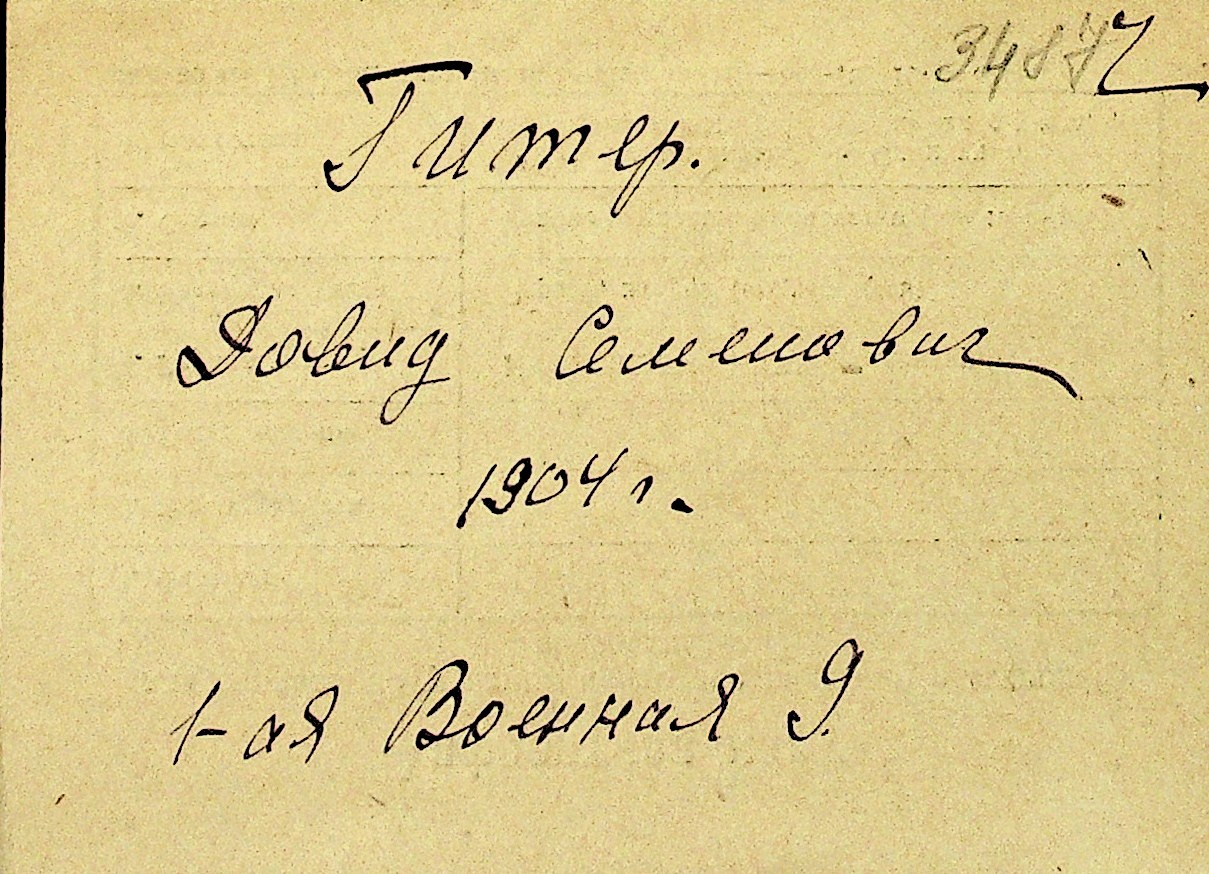 3487
Гитер.
Довид Семенович
1904 г.
1-ая Военная 9.